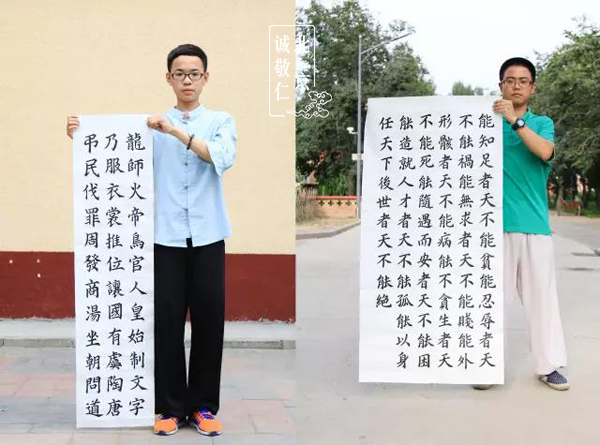 龍師火帝鳥官人皇始制文字
乃服衣裳推位讓國有虞陶唐
弔民伐罪周發商湯坐朝問道
能知足者天不能貧能忍辱者天
不能禍能無求者天不能賤能外
形骸者天不能病能不貪生者天
不能死能隨遇而安者天不能困
能造就人才者天不能孤能以身
任天下後世者天不能絕
诚敬仁